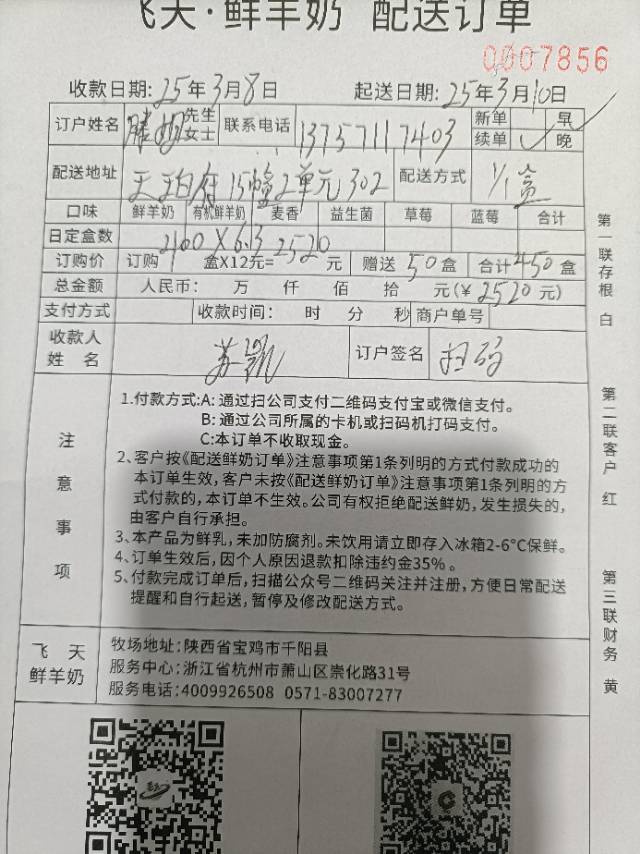 飞天·鲜羊奶 配送订单
0007856
收款日期: 25年3月8日 起送日期: 25年3月10日
订户姓名 先生 女士 联系电话 13757117403 新单 续单 ✓ 早 晚
配送地址 15幢2单元302 配送方式 1/1盒
口味 鲜羊奶 有机鲜羊奶 麦香 益生菌 草莓 蓝莓 合计
日定盒数
订购价 订购 400×6.3 盒X12元= 2520 元 赠送 50 盒 合计 450 盒
总金额 人民币: 万 仟 佰 拾 元(¥ 2520 元)
支付方式 收款时间: 时 分 秒 商户单号
收款人 姓名 苏凯 订户签名 扫码
注意事项
1.付款方式:A:通过扫公司支付二维码支付宝或微信支付。
B:通过公司所属的卡机或扫码机打码支付。
C:本订单不收取现金。
2、客户按《配送鲜奶订单》注意事项第1条列明的方式付款成功的
本订单生效,客户未按《配送鲜奶订单》注意事项第1条列明的方
式付款的,本订单不生效。公司有权拒绝配送鲜奶,发生损失的,
由客户自行承担。
3、本产品为鲜乳,未加防腐剂。未饮用请立即存入冰箱2-6°C保鲜。
4、订单生效后,因个人原因退款扣除违约金35%。
5、付款完成订单后,扫描公众号二维码关注并注册,方便日常配送
提醒和自行起送,暂停及修改配送方式。
飞天
鲜羊奶
牧场地址:陕西省宝鸡市千阳县
服务中心:浙江省杭州市萧山区崇化路31号
服务电话:4009926508 0571-83007277
第一联存根 白
第二联客户 红
第三联财务 黄